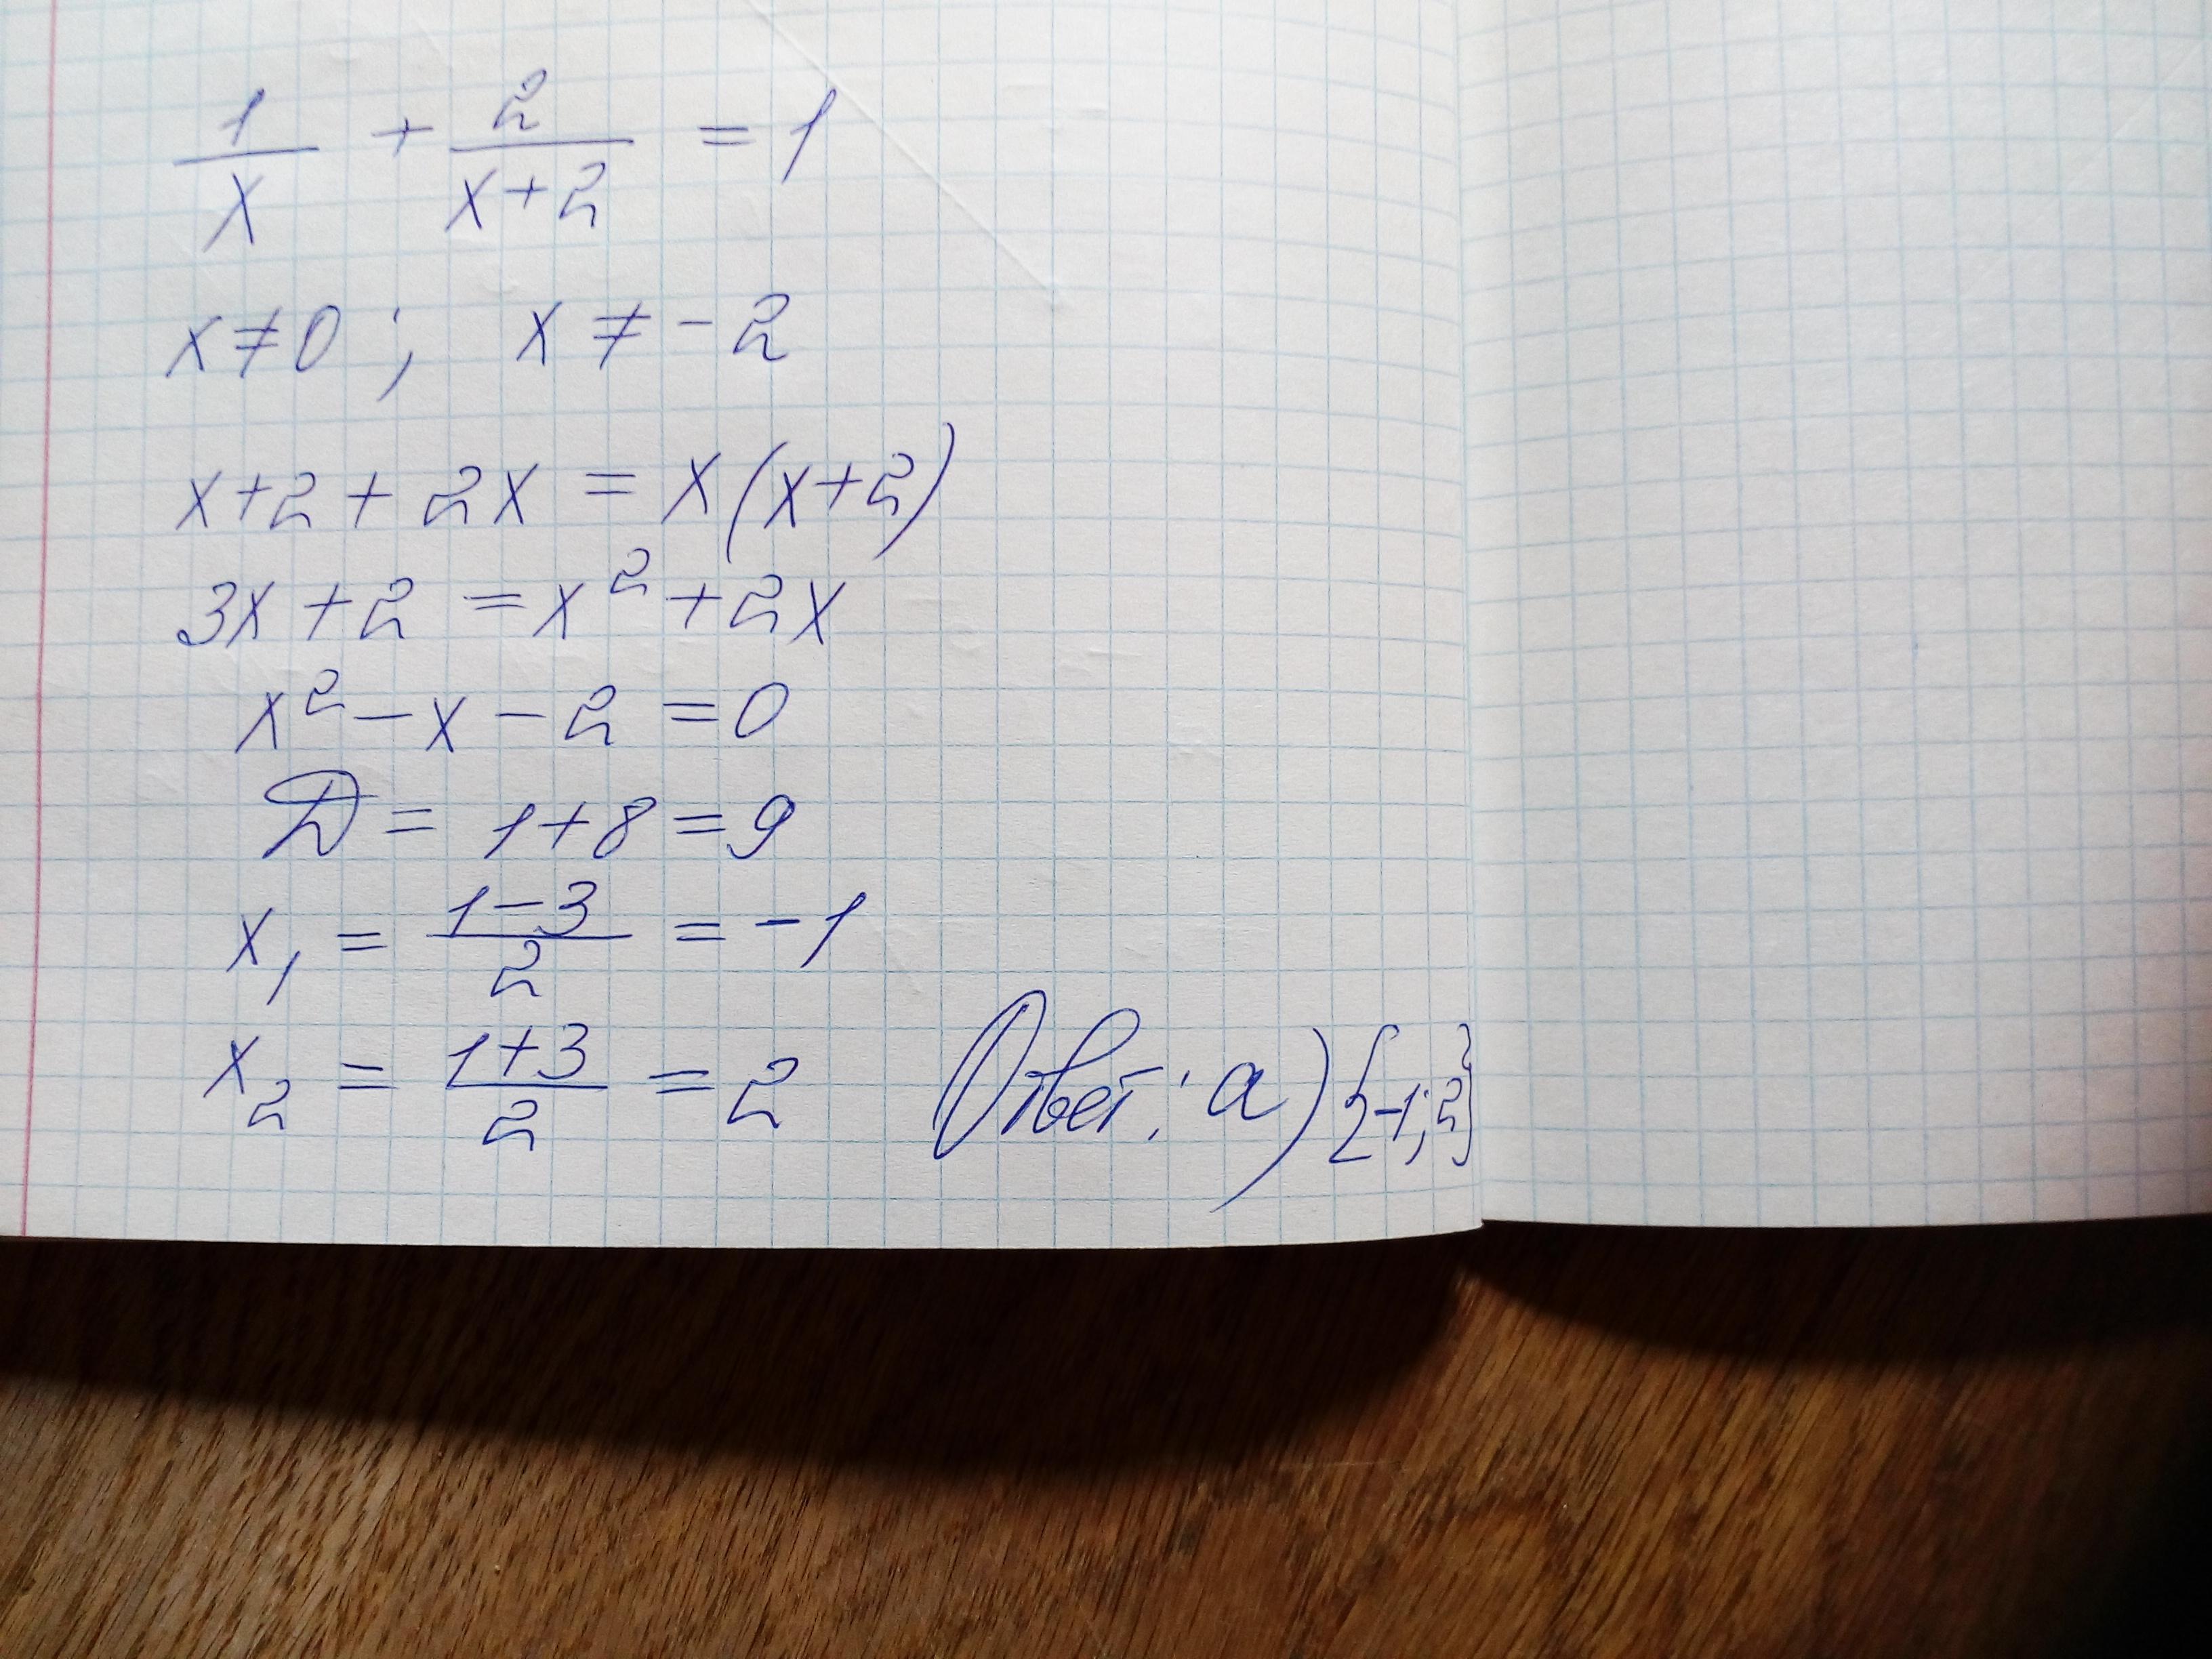 1/x + 2/(x+2) = 1
x≠0; x≠-2
x+2+2x = x(x+2)
3x+2 = x²+2x
x²-x-2=0
D = 1+8=9
x₁ = (1-3)/2 = -1
x₂ = (1+3)/2 = 2 Ответ: а) {-1; 2}